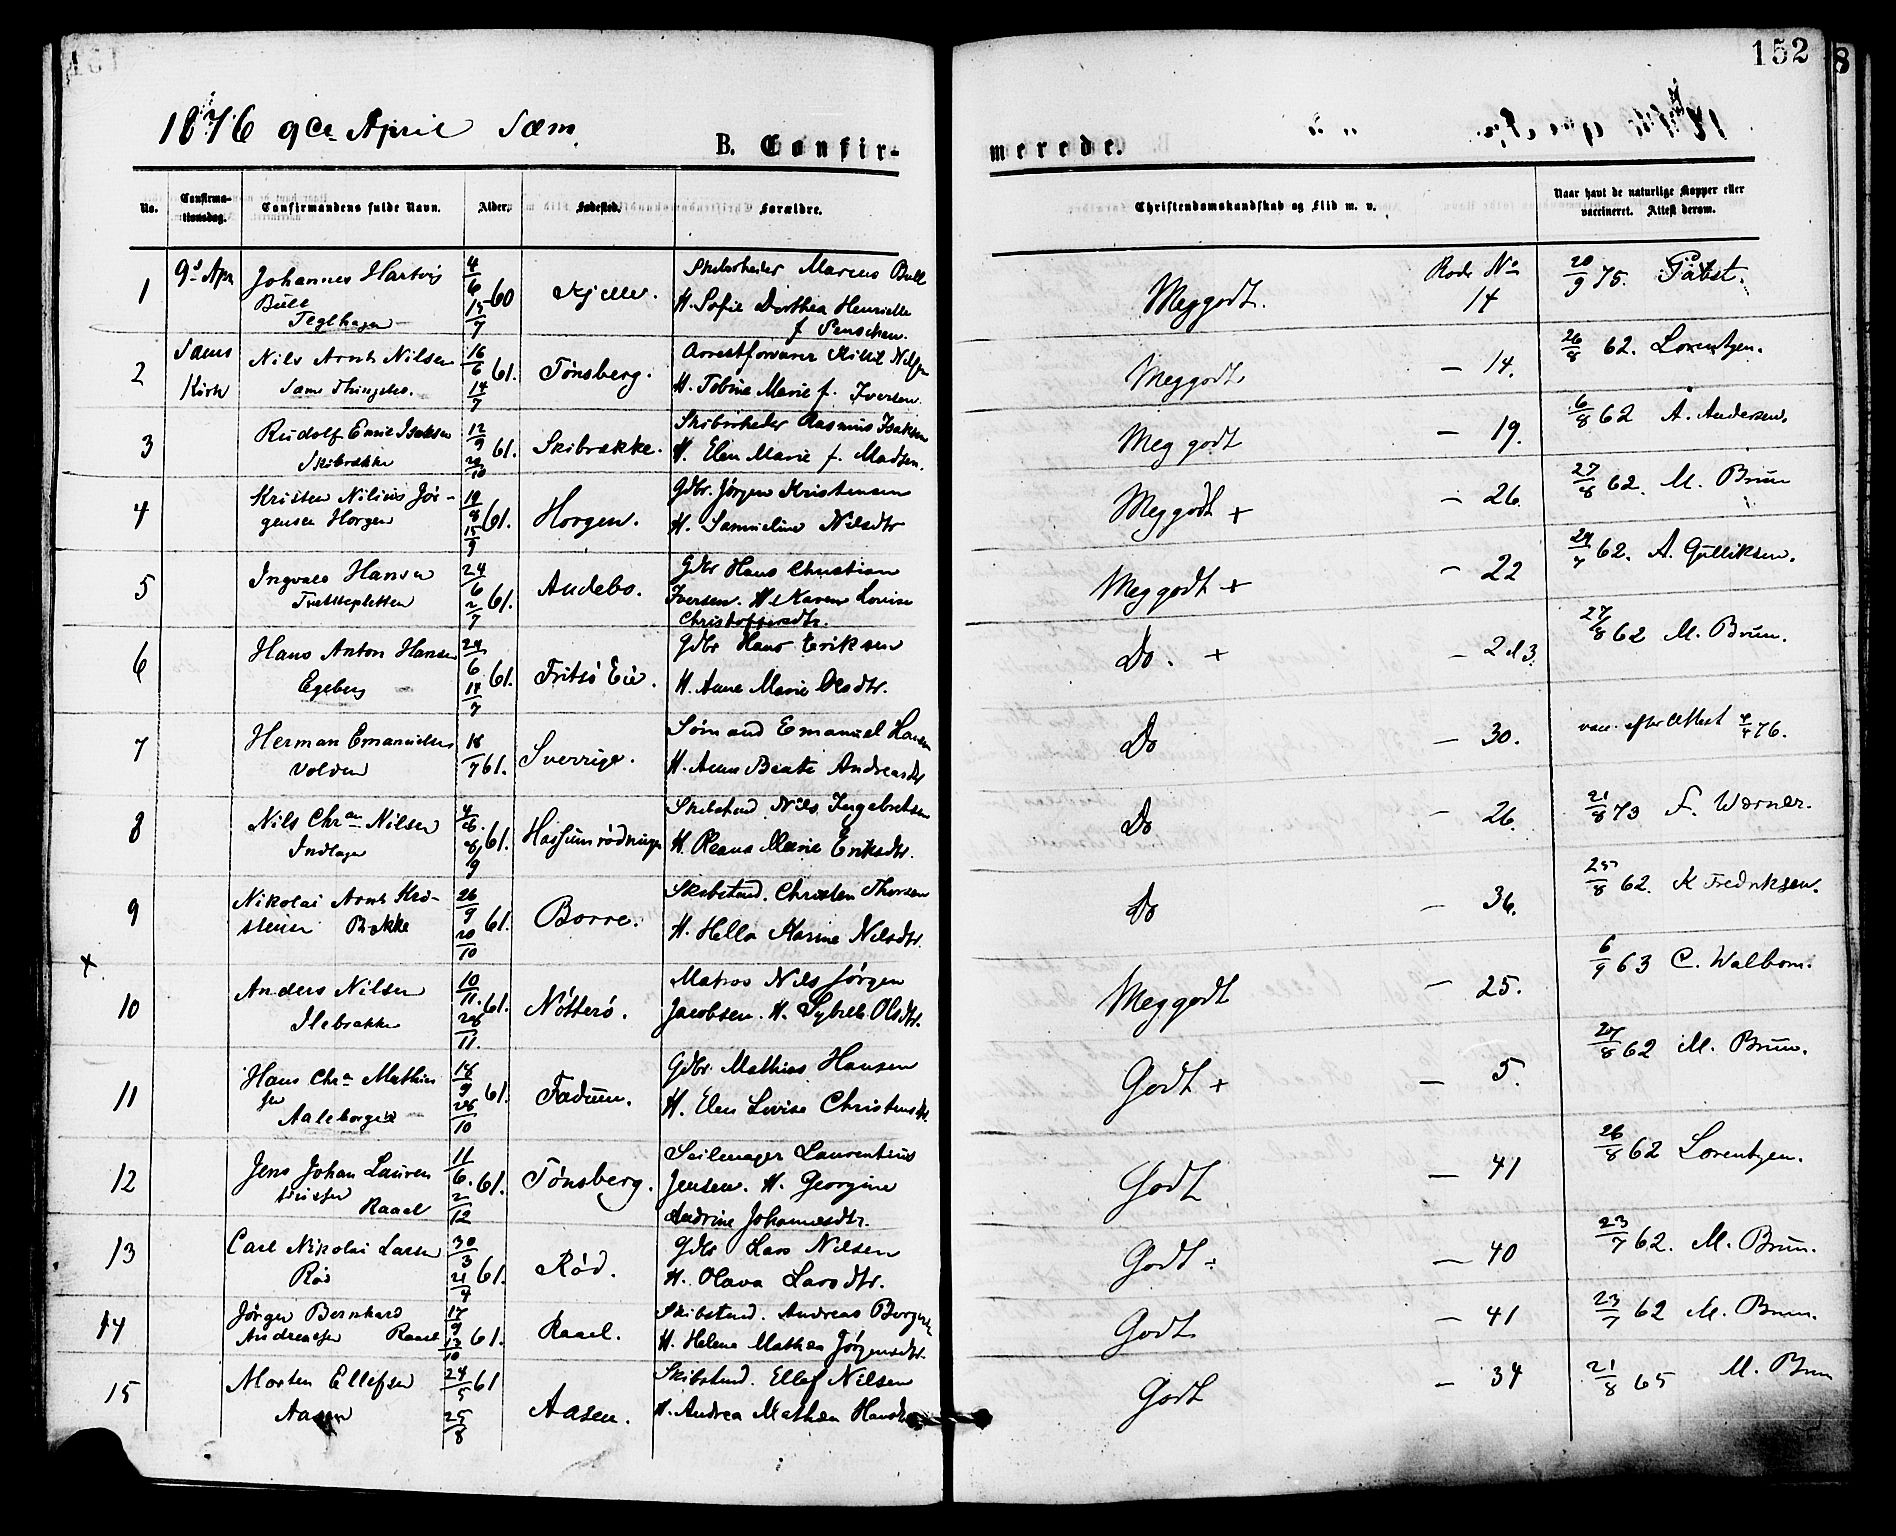 152
1876 9de April Sæm.
B. Confir-
merede.
No.
Confirma-
tionsdag.
Confirmandens fulde Navn.
Alder.
Fødested.
Forældre.
Christendomskundskab og Flid m. v.
Naar havt de naturlige Kopper eller
vaccineret. Attest derom.
1 9d Apr Johannes Hartvig
Bull
Teglhagen
4/6 15/7 60
Kjelle.
Skibsrheder Marcus Bull
H. Sofie Dorthea Henriette
f
Meg godt.
Rode No
14
20/9 75. Pabst.
2 Sæms
Kirke
Nils Arnt Nilsen
Sæm Thinghus.
16/6 14/7 61.
Tønsberg.
Arrestforvarer Nilsen
H. Tobine Marie f. Iversen.
Meg godt
— 14.
26/8 62. Lorentzen.
3 Rudolf Emil Isaksen
Skibrække
12/9 20/10 61.
Skibrække.
Skibsrheder Rasmus Isaksen
H. Elen Marie f. Madsen.
Meg godt
— 19.
6/8 62 A. Andersen.
4 Kristen Nilius Jør-
gensen Horgen
19/8 15/9 61.
Horgen.
Gdbr. Jørgen Kristensen
H. Samueline Nilsdtr
Meg godt +
— 26.
27/8 62. M. Brun
5 Ingvald Hansen
61.
24/6 2/7
Andebo.
Gdbr Hans Christian
Iversen. H. Karen Lovise
Christoffersdtr.
Meg godt +
— 22
62. A. Gulliksen.
6 Hans Anton Hansen
Egeberg
24/6 14/7 61.
Fritsø Eie.
Gdbr Hans Eriksen
H. Anne Marie Olsdtr.
Do. +
— 2 d 3.
27/8 62 M. Brun.
7 Herman Emanuelsen
Volden
18/7 61.
Sverrige.
Sømand Emanuel Hansen
H. Anne Beate Andreasdtr
Do
— 30.
vacc. efter Attest 4/4 76.
8 Nils Chran Nilsen
Indlagen
4/8. 8/9 61.
Skibstmd. Nils Ingebretsen
H. Marie Eriksdtr.
Do
— 26.
21/8 73 F. Werner.
9 Nikolai Arnt Kri-
stensen Bakke
26/9 20/10 61.
Borre.
Skibstmd. Christen Thorsen
H. Hella Karine Nilsdtr.
Do
— 36.
25/8 62. K Fredriksen.
x
10 Anders Nilsen
Ilebrække
10/11. 28/11. 61.
Nøtterø.
Matros Nils Jørgen
Jacobsen. H. Olsdtr.
Meg godt
— 25.
6/9 63 C. Walbom.
11 Hans Chra Mathiis
sen
Aaleborgen
18/9 28/10 61.
Fadum.
Gdbr. Mathias Hansen
H. Elen Lovise Christensdtr.
Godt +
— 5.
27/8 62 M. Brun.
12 Jens Johan Lauren
tiussen
Raael
11/6. 2/12 61.
Tønsberg.
Seilmager Laurentius
Jensen. H. Georgine
Andrine Johannesdtr.
Godt
— 41
26/8 62 Lorentzen.
13 Carl Nikolai Larsen
Rød
30/3 21/4 61.
Rød.
Gdbr Lars Nilsen
H. Olava Larsdtr.
Godt
— 40
23/7 62. M. Brun.
14 Jørgen Bernhard
Andreassen Raael
17/9 13/10 61.
Raael.
Skibstmd. Andreas Borgersen
H. Helene Mathea Jørgensdtr.
Godt
— 41
23/7 62 M. Brun.
15 Morten Ellefsen
Aasen
24/5 61
25/8
Aasen.
Skibstmd. Ellef Nilsen
H. Andrea Mathea Hansdtr
Godt
— 34
21/8 65 M. Brun